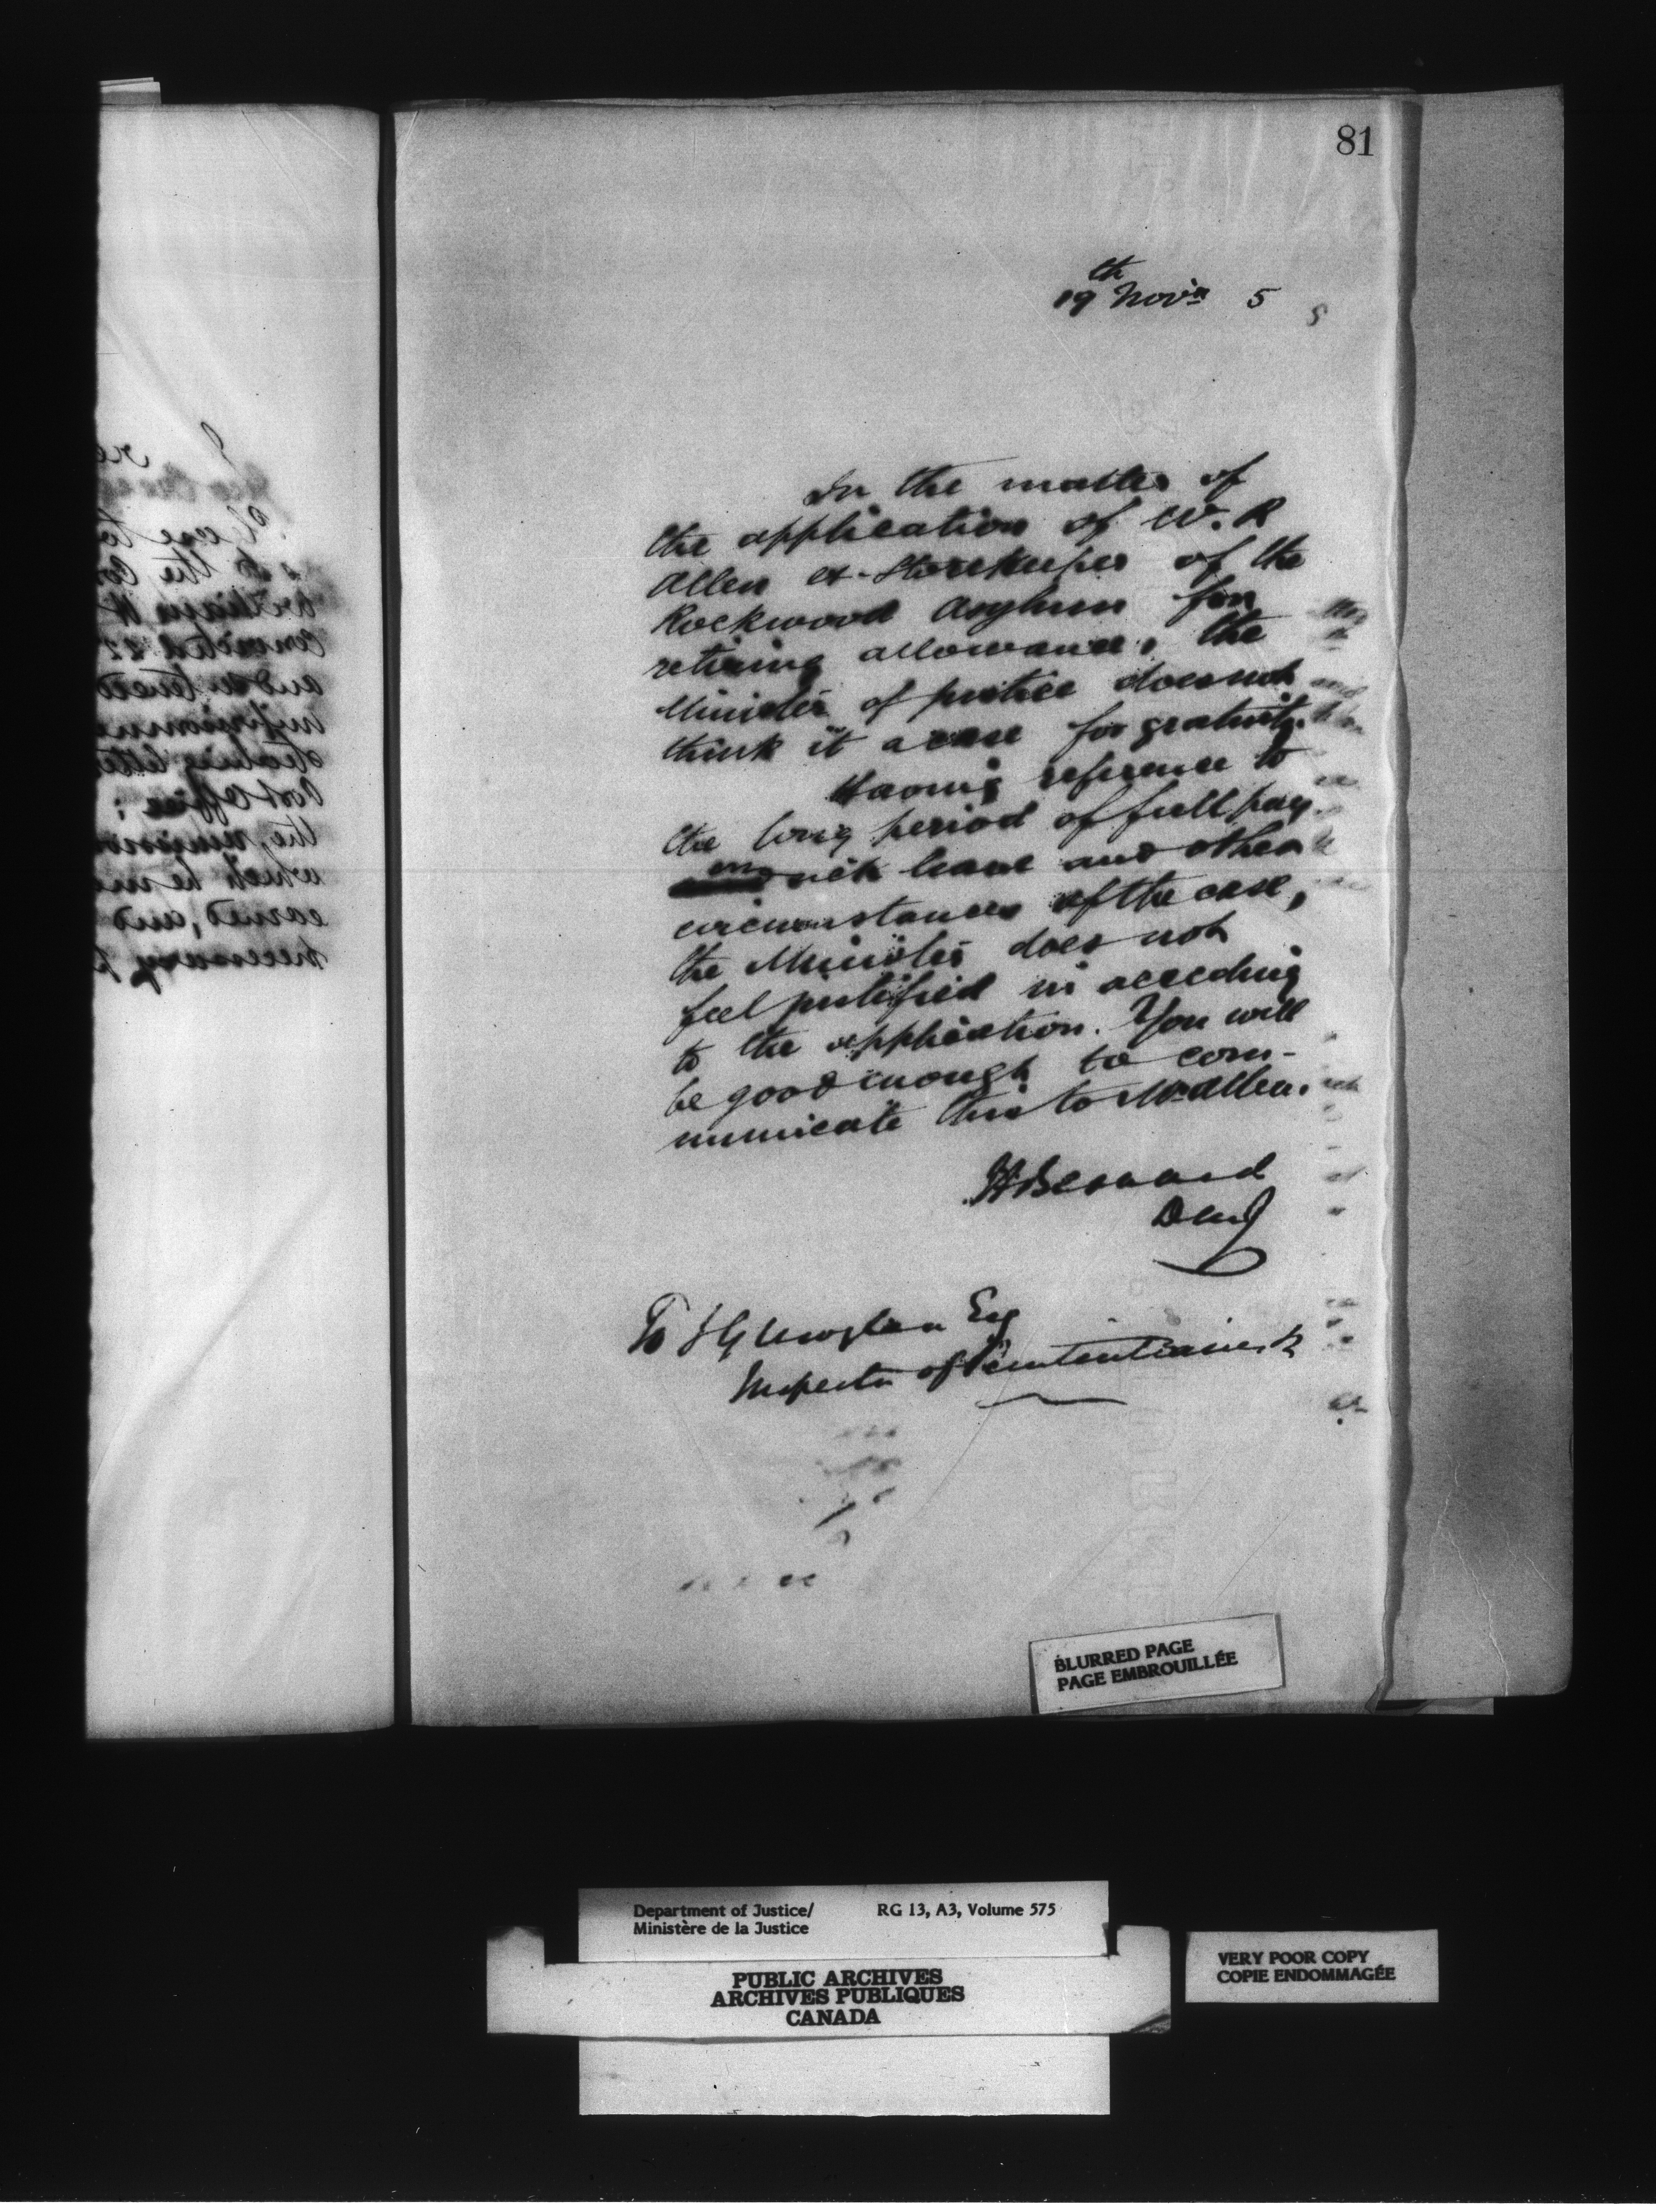 81
19th Novr 5
In the matter of
the application of W. R
Allen ex-Storekeeper of the
Rockwood Asylum for
retiring allowance, the
Minister of Justice does not
think it a case for gratuity.
Having reference to
the long period of full pay
on sick leave and other
circumstances of the case,
the Minister does not
feel justified in acceding
to the application. You will
be good enough to com-
municate this to Mr Allen.
H Bernard
DMJ
To J G Moylan Esq
Inspector of Penitentiaries
BLURRED PAGE
PAGE EMBROUILLÉE
Department of Justice/ RG 13, A3, Volume 575
Ministère de la Justice
PUBLIC ARCHIVES
ARCHIVES PUBLIQUES
CANADA
VERY POOR COPY
COPIE ENDOMMAGÉE